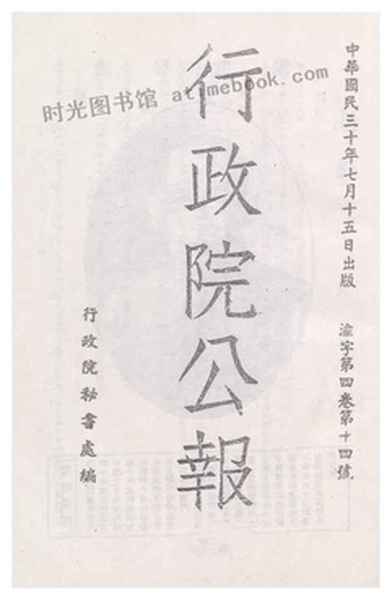 中華國民三十年七月十五日出版 渝字第四卷第十四號
行政院公報
行政院秘書處編
时光图书馆 atimebook.com